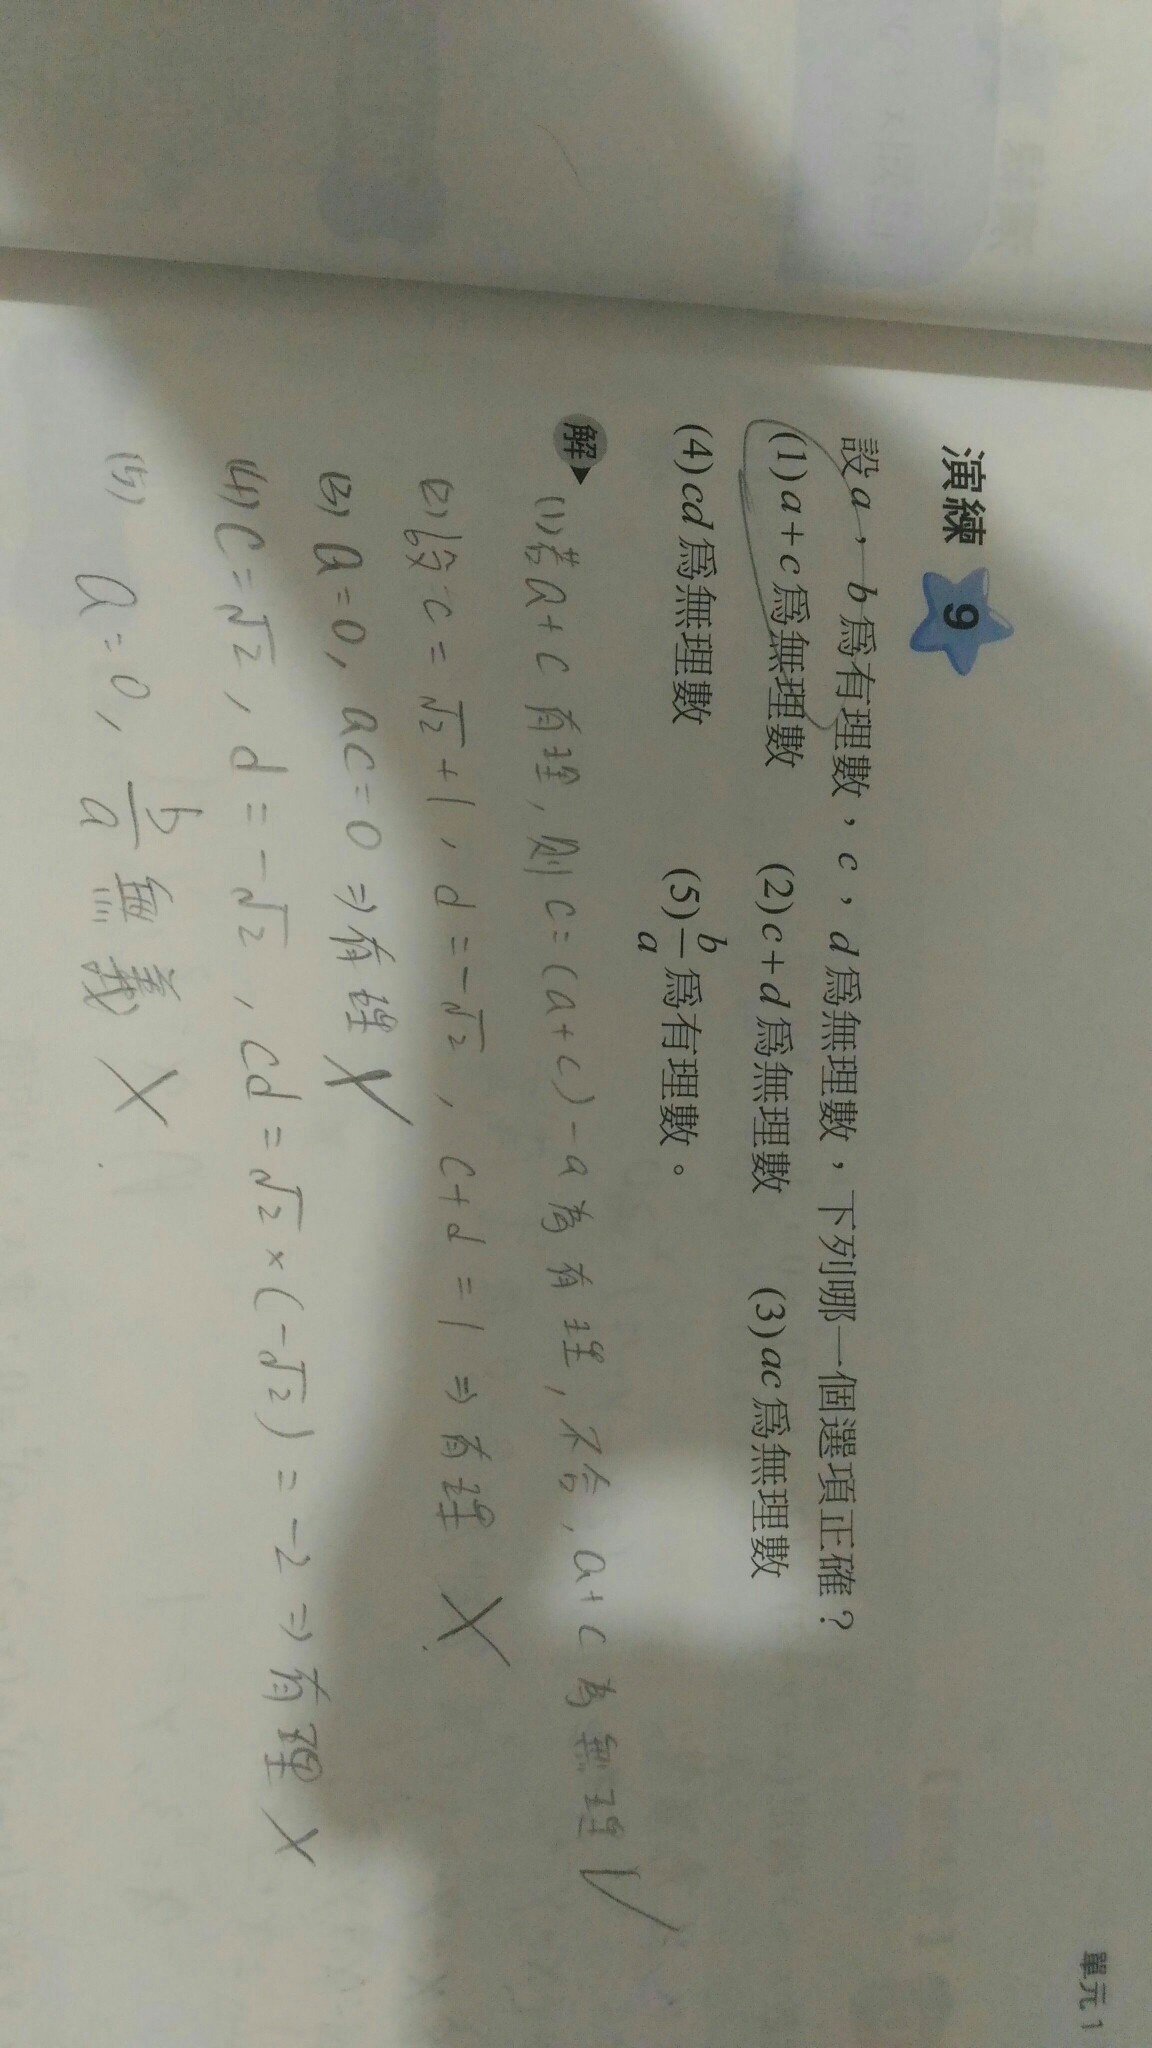 單元1
演練 9
設a，b為有理數，c，d為無理數，下列哪一個選項正確？
(1)a+c為無理數 (2)c+d為無理數 (3)ac為無理數
(4)cd為無理數 (5)b/a為有理數。
解
(1)若a+c有理，則c=(a+c)-a為有理，不合，a+c為無理 V
(2)設c=√2+1，d=-√2，c+d=1⇒有理 X
(3)a=0，ac=0⇒有理 X
(4)c=√2，d=-√2，cd=√2×(-√2)=-2⇒有理 X
(5) a=0，b/a無義 X